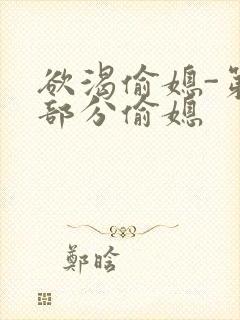 欲渴偷媳-第
部分偷媳
鄭晗